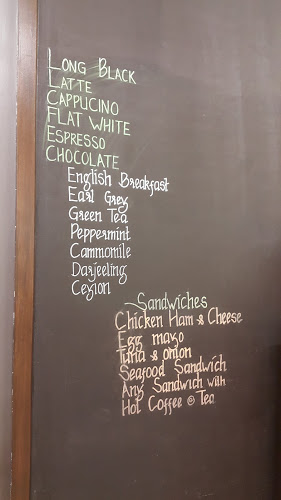 Long Black
Latte
Cappucino
Flat White
Espresso
Chocolate
English Breakfast
Earl Grey
Green Tea
Peppermint
Cammomile
Darjeeling
Ceylon
Sandwiches
Chicken Ham & Cheese
Egg mayo
Tuna & onion
Seafood Sandwich
Any Sandwich with
Hot Coffee @ Tea